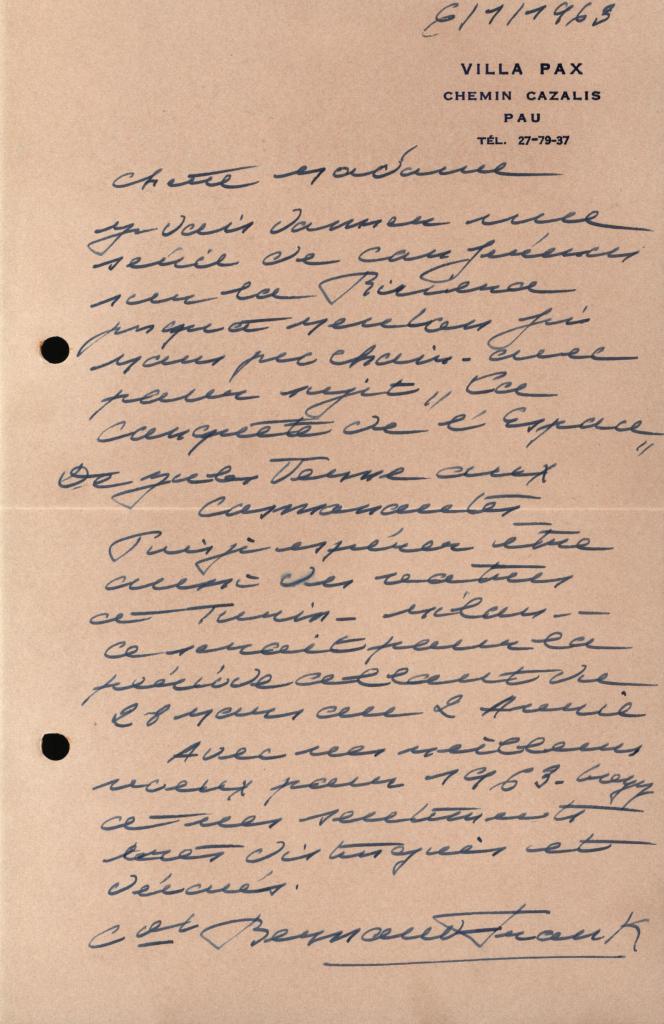 6/1/1963
VILLA PAX
CHEMIN CAZALIS
PAU
TÉL. 27-79-37
Chère Madame
Je vais donner une
série de conférences
sur la Riviera
jusqu'à Menton fin
mars prochain - avec
pour sujet „ La
conquête de l'Espace "
De Jules Verne aux
Cosmonautes
Puis je espérer être
aussi des vôtres
à Turin - Milan -
ce serait pour la
période allant du
28 mars au 2 Avril
Avec mes meilleurs
voeux pour 1963 -
et mes sentiments
très distingués et
dévoués.
Col Bernard Frank